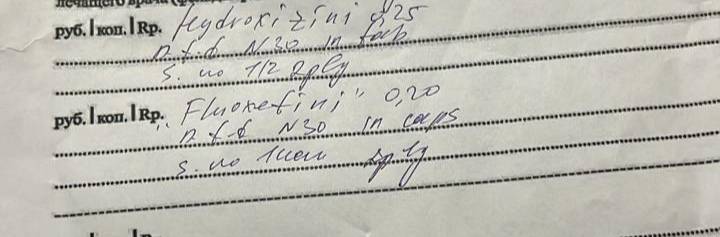 лечащего врача
руб. | коп. | Rp. Hydroxizini 0,25
D.t.d N30 in tab
S. по 1/2 2р/д
руб. | коп. | Rp. "Fluoxetini" 0,20
D.t.d N30 in caps
S. по 1 кап 2р/д